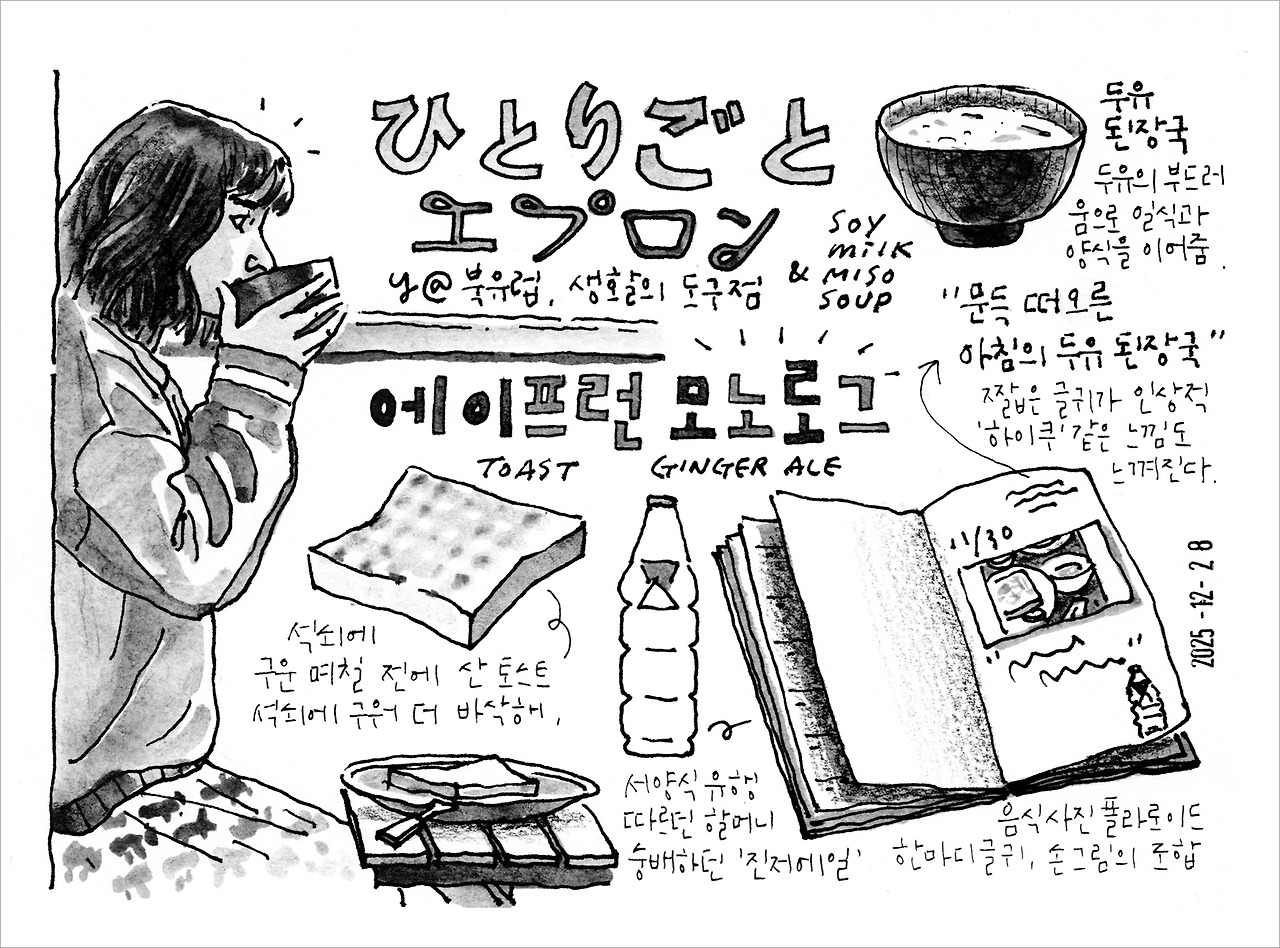 ひとりごと
エプロン
y@ 북유럽, 생활의 도구점
& SOY
MILK
MISO
SOUP
두유
된장국
두유의 부드러
움으로 일식과
양식을 이어줌.
"문득 떠오른
아침의 두유 된장국"
짧은 글귀가 인상적
'하이쿠' 같은 느낌도
느껴진다.
에이프런 모노로그
TOAST
GINGER ALE
11/30
2025-12-28
석쇠에
구운 며칠 전에 산 토스트
석쇠에 구워 더 바삭해,
서양식 유행
따르던 할머니
숭배하던 '진저에일'
음식사진 폴라로이드
한마디글귀, 손그림의 조합